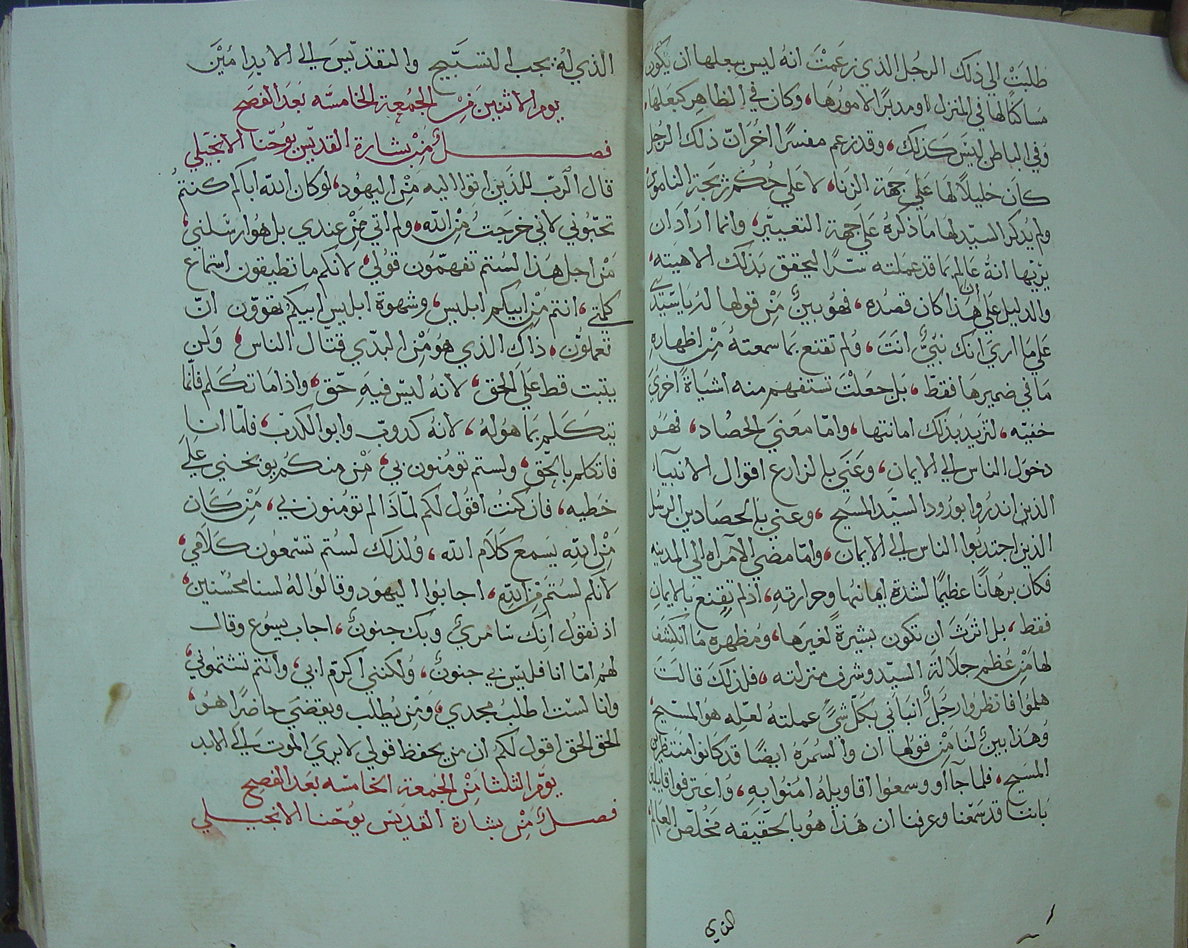 طلبت الى ذلك الرجل الذى زعمت انه ليس ببعلها ان يكون
مساكنًا لها في المنزل او مدبرًا لامورها، وكان في الظاهر كبعلها،
وفي الباطن ليس كذلك، وقد زعم مفسرًا اخر ان ذلك الرجل
كان خليلاً لها على جهة الزنا، لا على حكم شريعة الناموس
ولم يذكر السيد لها ما ذكره على جهة التعيير، وانما اراد ان
يريها انه عالم بما قد عملته سرًا ليحقق بذلك الاهيته،
والدليل على ان هذا كان قصده، فهو بين من قولها له ياسيدي
على ما ارى انك نبي انت، ولم تقنع بما سمعته من اظهاره
ما في ضميرها فقط، بل جعلت تستفهم منه اشياة اخرى
خفيه، لتزيد بذلك امانتها، واما معنى الحصاد، فهو
دخول الناس الى الايمان، وعنى بالزارع اقوال الانبياء
الذين انذروا بورود السيد المسيح، وعنى بالحصادين الرسل
الذين اجتدبوا الناس الى الايمان، واما مضى الامراه الى المدينه
فكان برهانًا عظيمًا لشدة ايمانها وحرارته، اذ لم تقنع بالايمان
فقط، بل اثرت ان تكون بشيرة لغيرها، ومظهره ما انكشف
لها من عظم جلالة السيد وشرف منزلته، فلذلك قالت
هلموا فانظروا رجل انبانى بكل شى عملته لعله هو المسيح،
وهذا بين لنا من قولها ان والسمرة ايضًا قد كانوا منتظرين
المسيح، فلما جآاوو وسمعوا اقاويله امنوا به، واعترفوا قايلين
باننا قد سمعنا وعرفنا ان هذا هو بالحقيقه مخلص العالم
الذي
الذي له يجب التسبيح والتقديس الى الابد امين
يوم الاثنين من الجمعة الخامسه بعد الفصح
فصل من بشارة القديس يوحنا الانجيلي
قال الرب للذين اتوا اليه من اليهود، لو كان الله اباكم كنتم
تحبوني لانى خرجت من الله، ولم اتى من عندي بل هو ارسلنى،
من اجل هذا لستم تفهمون قولي، لانكم ما تطيقون استماع
كلمتي، انتم من ابيكم ابليس، وشهوة ابليس ابيكم تهوون ان
تعملون، ذاك الذي هو من البدي قتال الناس، ولن
يثبت قط على الحق، لانه ليس فيه حق، واذا ما تكلم فانما
يتكلم بما هو له، لانه كدوب وابو الكدب، فاما انا
فاتكلم بالحق، ولستم تومنون بي، من منكم يوبخني على
خطيه، فان كنت اقول لكم لماذا لم تومنون بي، من كان
من الله يسمع كلام الله، ولذلك لستم تسمعون كلامي،
لانكم لستم من الله، اجابوا اليهود وقالوا له لسنا محسنين
اذ نقول انك سامري وبك جنون، اجاب يسوع وقال
لهم اما انا فليس بي جنون، ولكنني اكرم ابي، وانتم تشتموني
وانا لست اطلب مجدي، ومن يطلب ويقضي حاضرًا هو،
الحق الحق اقول لكم ان من يحفظ قولي لا يرى الموت الى الابد
يوم الثلثا من الجمعة الخامسه بعد الفصح
فصل من بشارة القديس يوحنا الانجيلي